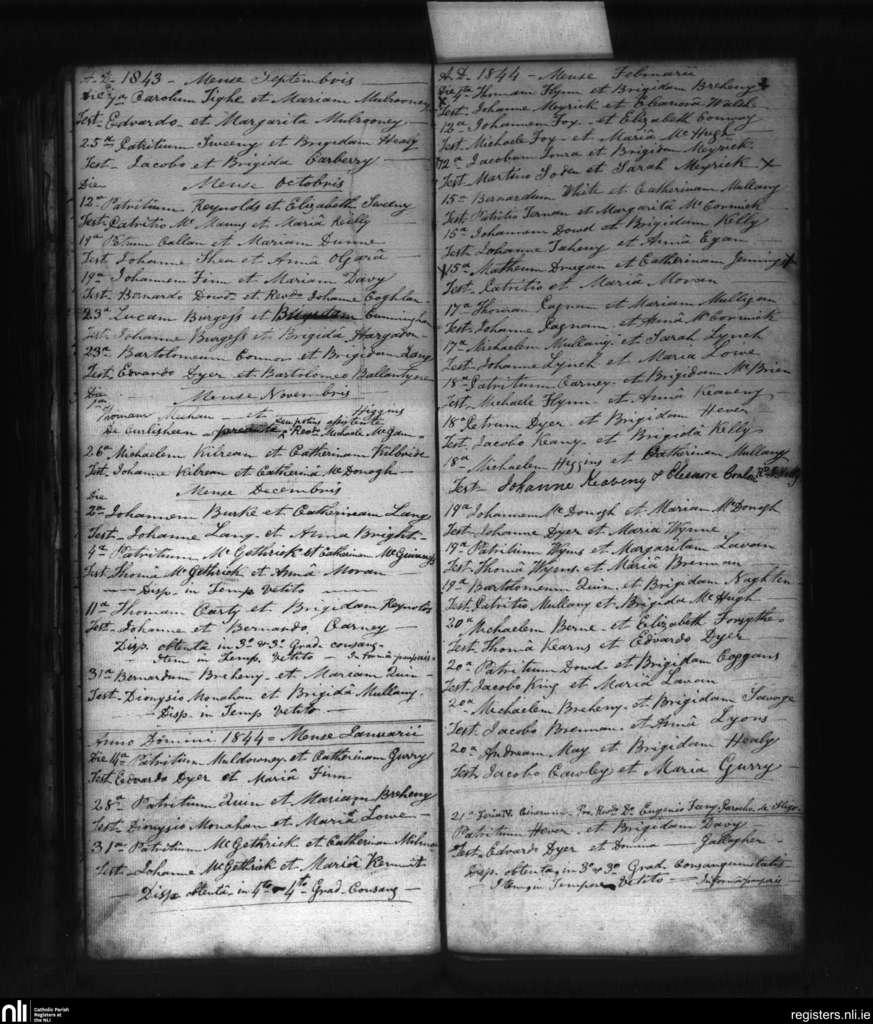 A.D. 1843 - Mense Septembris
Die 7a Carolum Tighe et Mariam Mulrooney
Test. Edvardo et Margarita Mulrooney
25a Patritium Sweeny et Brigidam Healy
Test. Jacobo et Brigida Carberry
Die Mense Octobris
12a Patritium Reynolds et Elizabeth Sweeny
Test. Patritio Mc Manus et Mariâ Kielly
19a Petrum Callan et Mariam Dunne
Test. Johanne Shea et Annâ OGara
19a Johannem Finn et Mariam Davy
Test. Bernardo Dowd et Revdo Johanne Coghlan
23a Lucam Burgess et Cunningham
Test. Johanne Burgess et Brigidâ Hargadon
23a Bartolomeum Connor et Brigidam Lang
Test. Edvardo Dyer et Bartolomeo Ballantyne
Die Mense Novembris
1a Thomam Meehan et Higgins
De Curlisheen assistente Revdo Michaele McGan
26a Michaelem Kilrean et Catherinam Kilbride
Test. Johanne Kilrean et Catherinâ McDonogh
Die Mense Decembris
2a Johannem Burke et Catherinam Lang
Test. Johanne Lang et Anna Bright
4a Patritium McGethrick et Catherinam McGuinness
Test. Thomâ McGethrick et Annâ Moran
Disp. in Temp. Vetito
11a Thomam Carty et Brigidam Reynolds
Test. Johanne et Bernardo Carney
Disp. obtenta in 3o & 3o Grad. consang.
Item in Temp. Vetito - In formâ pauperis
31a Bernardum Breheny et Mariam Quin
Test. Dionysio Monahan et Brigidâ Mullany
Disp. in Temp Vetito
Anno Domini 1844 = Mense Januarii
Die 4a Patritium Muldowney et Catherinam Gurry
Test. Edvardo Dyer et Mariâ Finn
28a Patritium Quin et Mariam Breheny
Test. Dionysio Monahan et Maria Lowe
31a Patritium McGethrick et Catherinam
Test. Johanne McGethrick et Mariâ Kermit
Disp. obtentâ in 4to & 4to Grad. Consang
A.D. 1844 - Mense Februarii
Die 4a Thomam Flynn et Brigidam Breheny
Test. Johanne Meyrick et Eleanorâ Walsh
12a Johannem Fox et Elizabeth Conway
Test. Michaele Fox et Mariâ McHugh
12a Jacobum et Brigidam Meyrick
Test. Martino et Sarah Meyrick X
15a Bernardum White et Catherinam Mullany
Test. Patritio Ternan et Margaritâ McCormick
15a Johannem Dowd et Brigidam Kelly
Test. Johanne Taheny et Annâ Egan
15a Matheum Druegan et Catherinam Jennings X
Test. Patritio et Maria Moran
17a Thomam Cagnan et Mariam Mulligan
Test. Johanne Cagnan et Annâ McCormick
17a Michaelem Mullany et Sarah Lynch
Test. Johanne Lynch et Maria Lowe
18a Patritium Carney et Brigidam McBrien
Test. Michaele Flynn et Annâ Keaveny
18a Petrum Dyer et Brigidam Hever
Test. Jacobo Keany et Brigidâ Kelly
18a Michaelem Higgins et Catherinam Mullany
Test. Johanne Keaveny & Eleanore
19a Johannem McDonogh et Mariam McDonogh
Test. Johanne Dyer et Maria Wynne
19a Patritium Wyms et Margaritam Lavan
Test. Thomâ Wyms et Mariâ Brennan
19a Bartolomeum Quin et Brigidam Naghten
Test. Patritio Mullany et Brigida McHugh
20a Michaelem Berne et Elizabeth Forsythe
Test. Thomâ Kearns et Edvardo Dyer
20a Patritium Dowd et Brigidam Coggans
Test. Jacobo King et Mariâ Lavan
20a Michaelem Breheny et Brigidam Savage
Test. Jacobo Brennan et Annâ Lyons
20a Andream May et Brigidam Healy
Test. Jacobo Cawley et Maria Gurry
21a Feria IV. Cinerum Revdo Do Eugenio Feny Parocho de Sligo
Patritium Hever et Brigidam Davy
Test. Edvardo Dyer et Domina Gallagher
Disp. obtenta in 3o & 3o Grad. Consanguinitatis
Itemque in Tempore Vetito - In formâ pauperis
nli Catholic Parish
Registers at
the NLI
registers.nli.ie